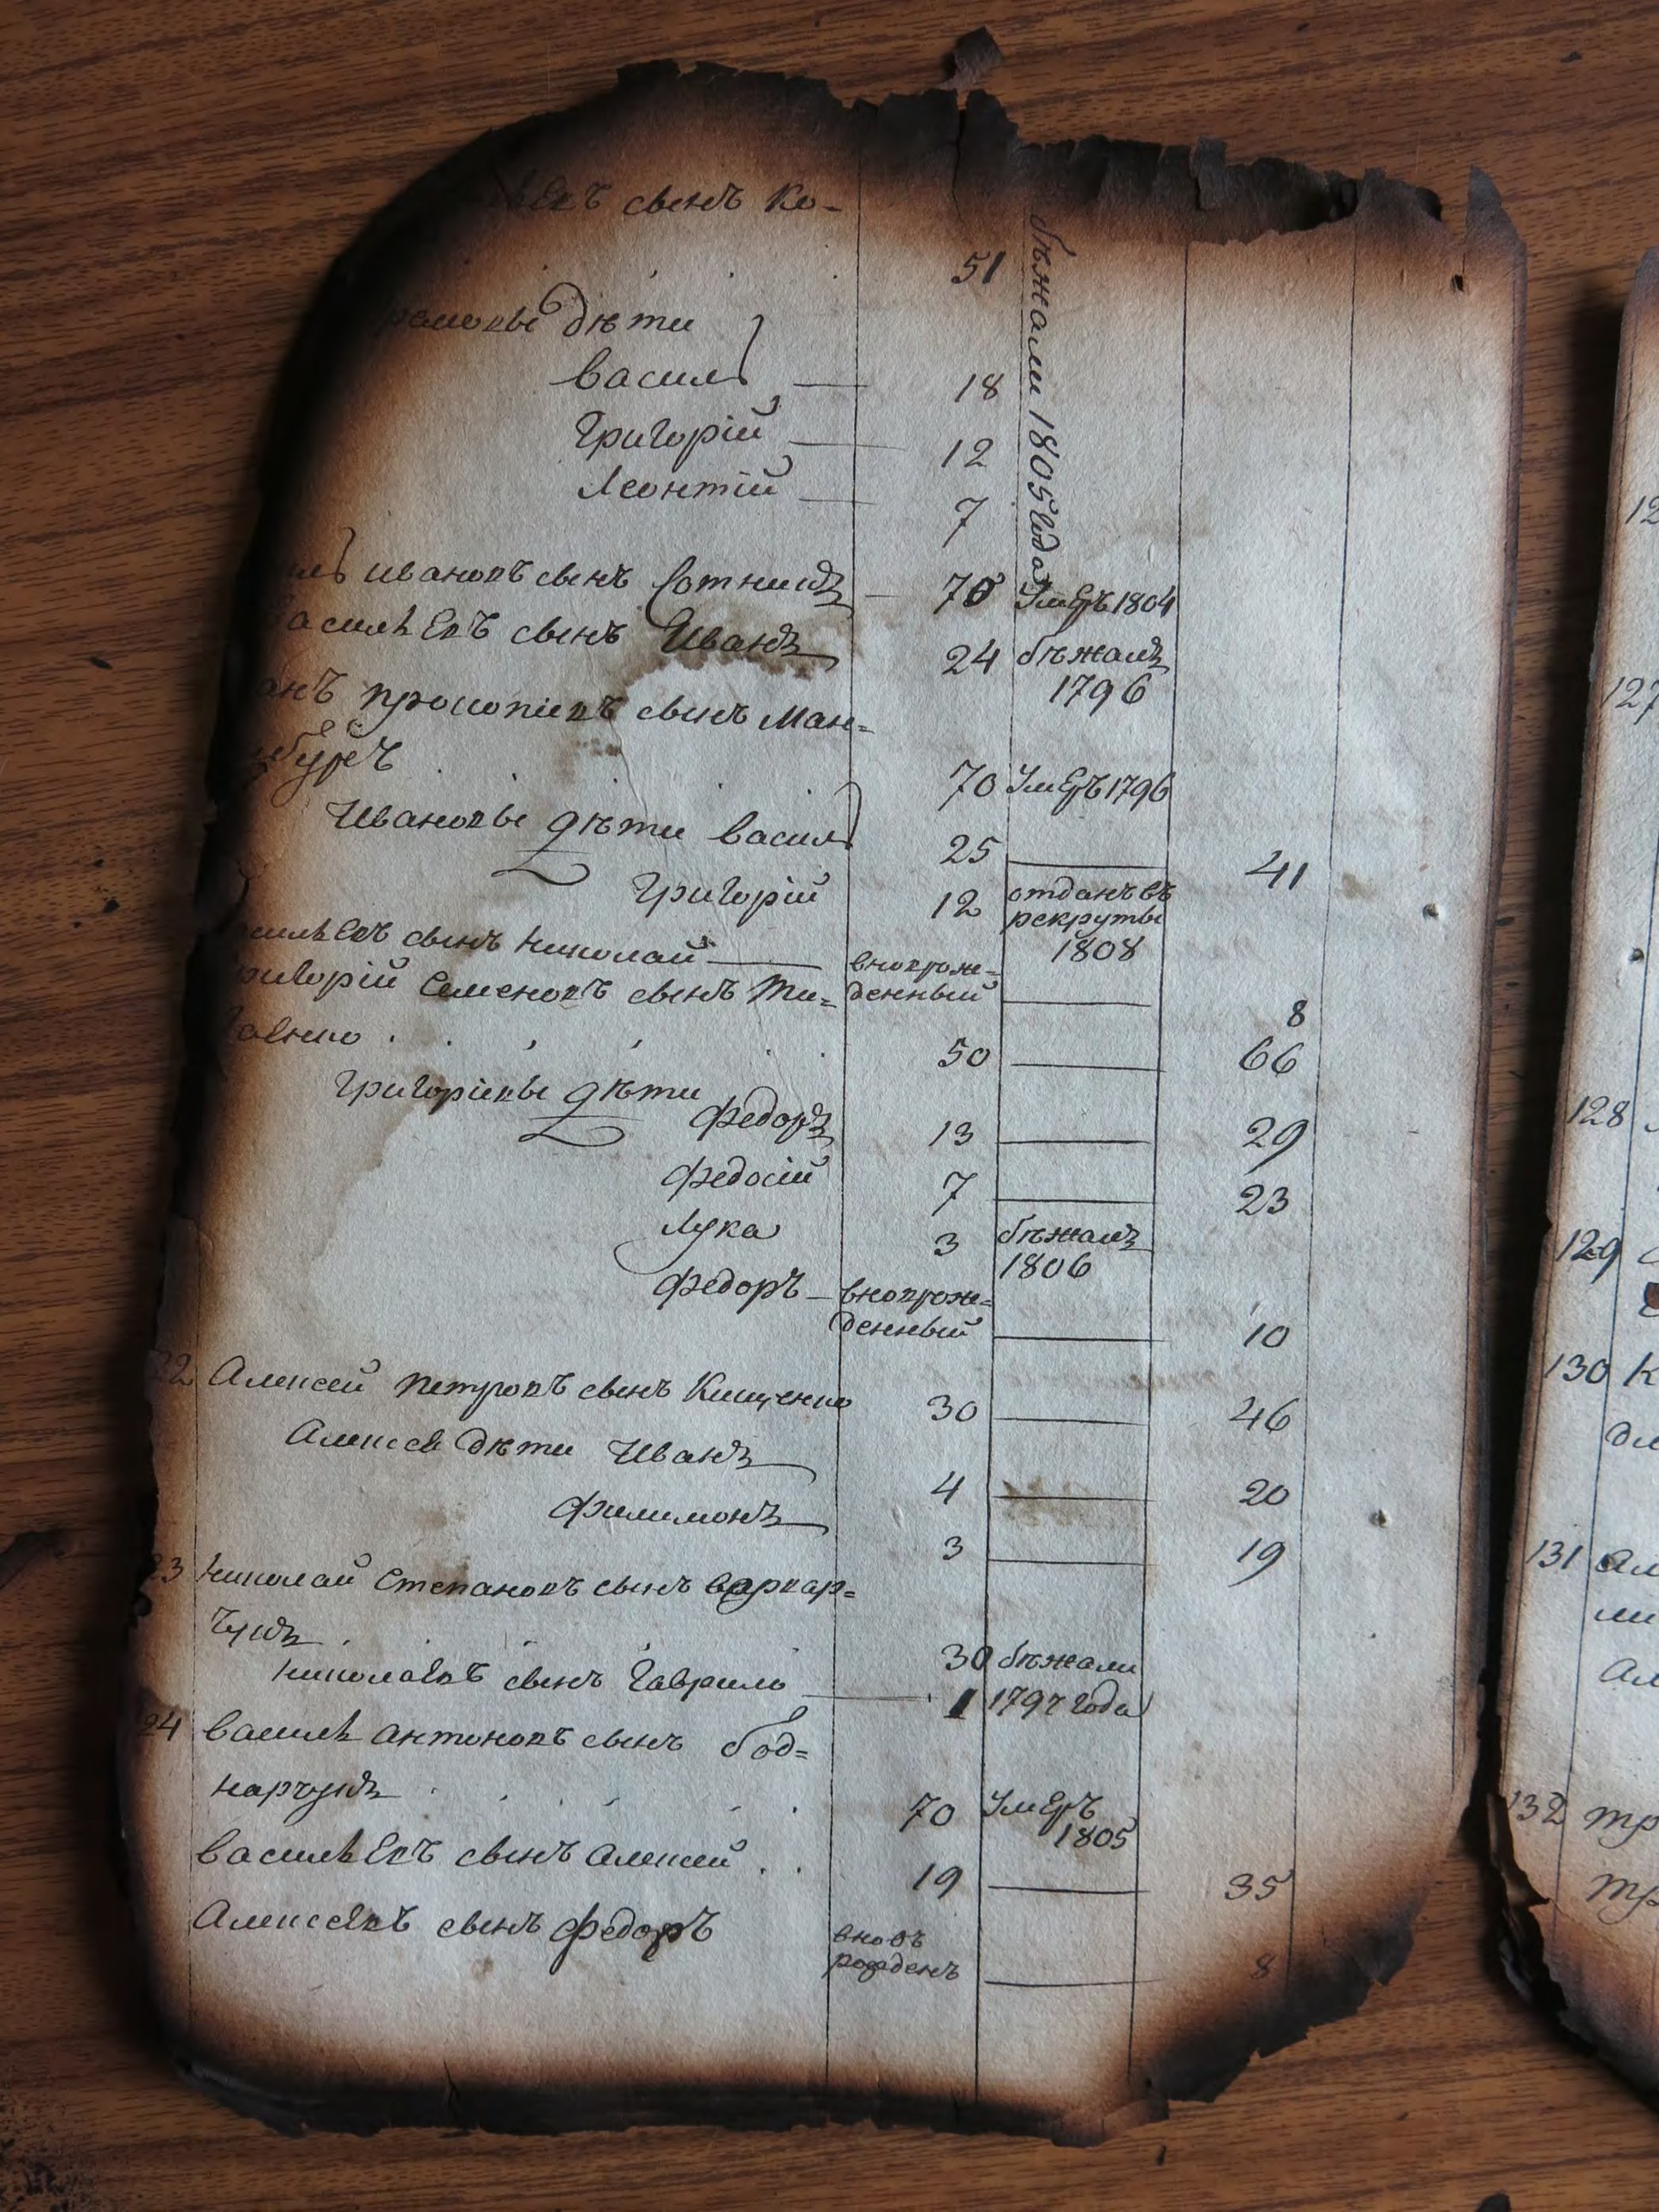 сынъ Ко-
51
бѣжали 1805 года
дѣти
Василь 18
Григорій 12
Леонтій 7
Ивановъ сынъ Сотникъ 70 умеръ 1804
асильевъ сынъ Иванъ 24 бѣжалъ
1796
анъ Прокопіевъ сынъ Ман=
70 умеръ 1796
Ивановы дѣти Василь 25 41
Григорій 12 отданъ въ
рекруты
1808
сильевъ сынъ Николай вноврож=
денный 8
ригорій Семеновъ сынъ Ти=
50 66
Григоріевы дѣти
Федоръ 13 29
Федосій 7 23
Лука 3 бѣжалъ
1806
Федоръ вноврож=
денный 10
22 Алексей Петровъ сынъ Кищенко 30 46
Алексеевы дѣти Иванъ 4 20
Филимонъ 3 19
23 Николай Степановъ сынъ Варвар=
чукъ 30 бѣжали
Николаевъ сынъ Гаврило 1 1797 года
24 Василь Антоновъ сынъ Бод=
нарчукъ 70 умеръ
1805
Васильевъ сынъ Алексей 19 35
Алексеевъ сынъ Федоръ вновъ
рожденъ 8
12
127
128
129
130 К
131 Ал
ли
Ал
132 Тр
Тр